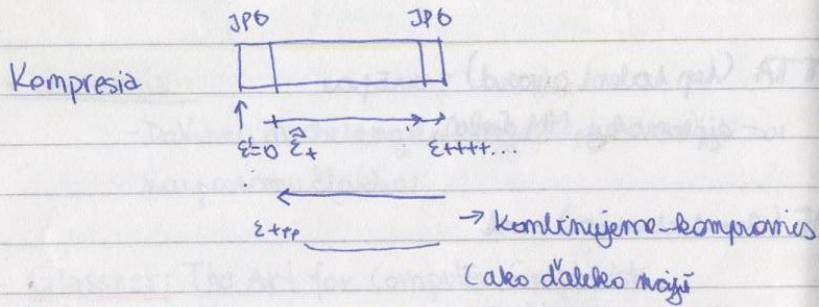 JPG JPG
Kompresia
ε=0 ε̂+ ε++++...
ε+++ → Kombinujeme-kompromis
(ako ďaleko majú